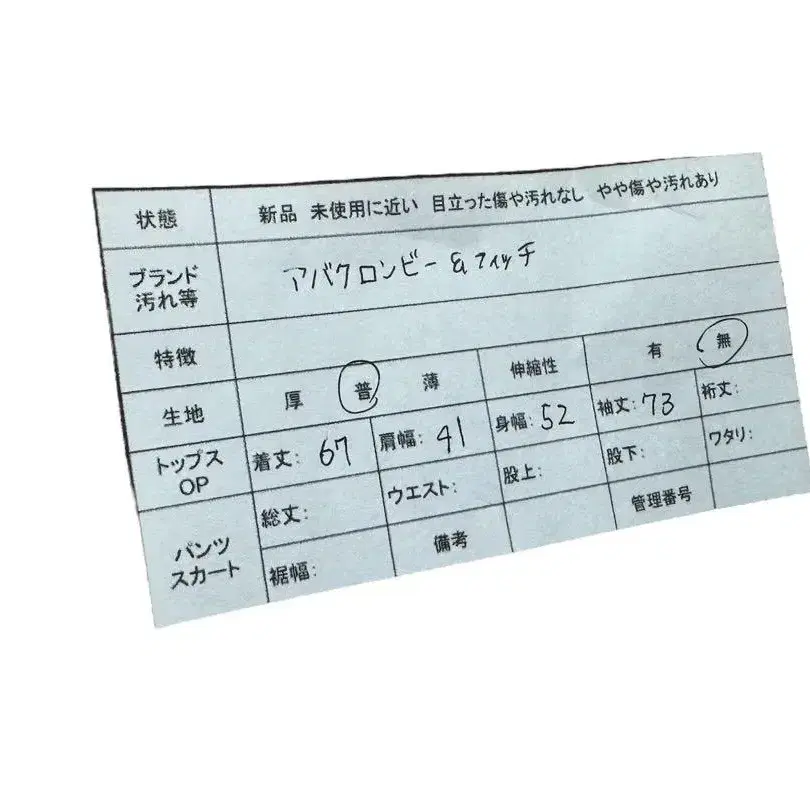 状態 新品 未使用に近い 目立った傷や汚れなし やや傷や汚れあり
ブランド アバクロンビー&フィッチ
汚れ等
特徴
生地 厚 普 薄 伸縮性 有 無
トップス OP 着丈: 67 肩幅: 41 身幅: 52 袖丈: 73 裄丈:
パンツ スカート 総丈: ウエスト: 股上: 股下: ワタリ:
裾幅: 備考 管理番号